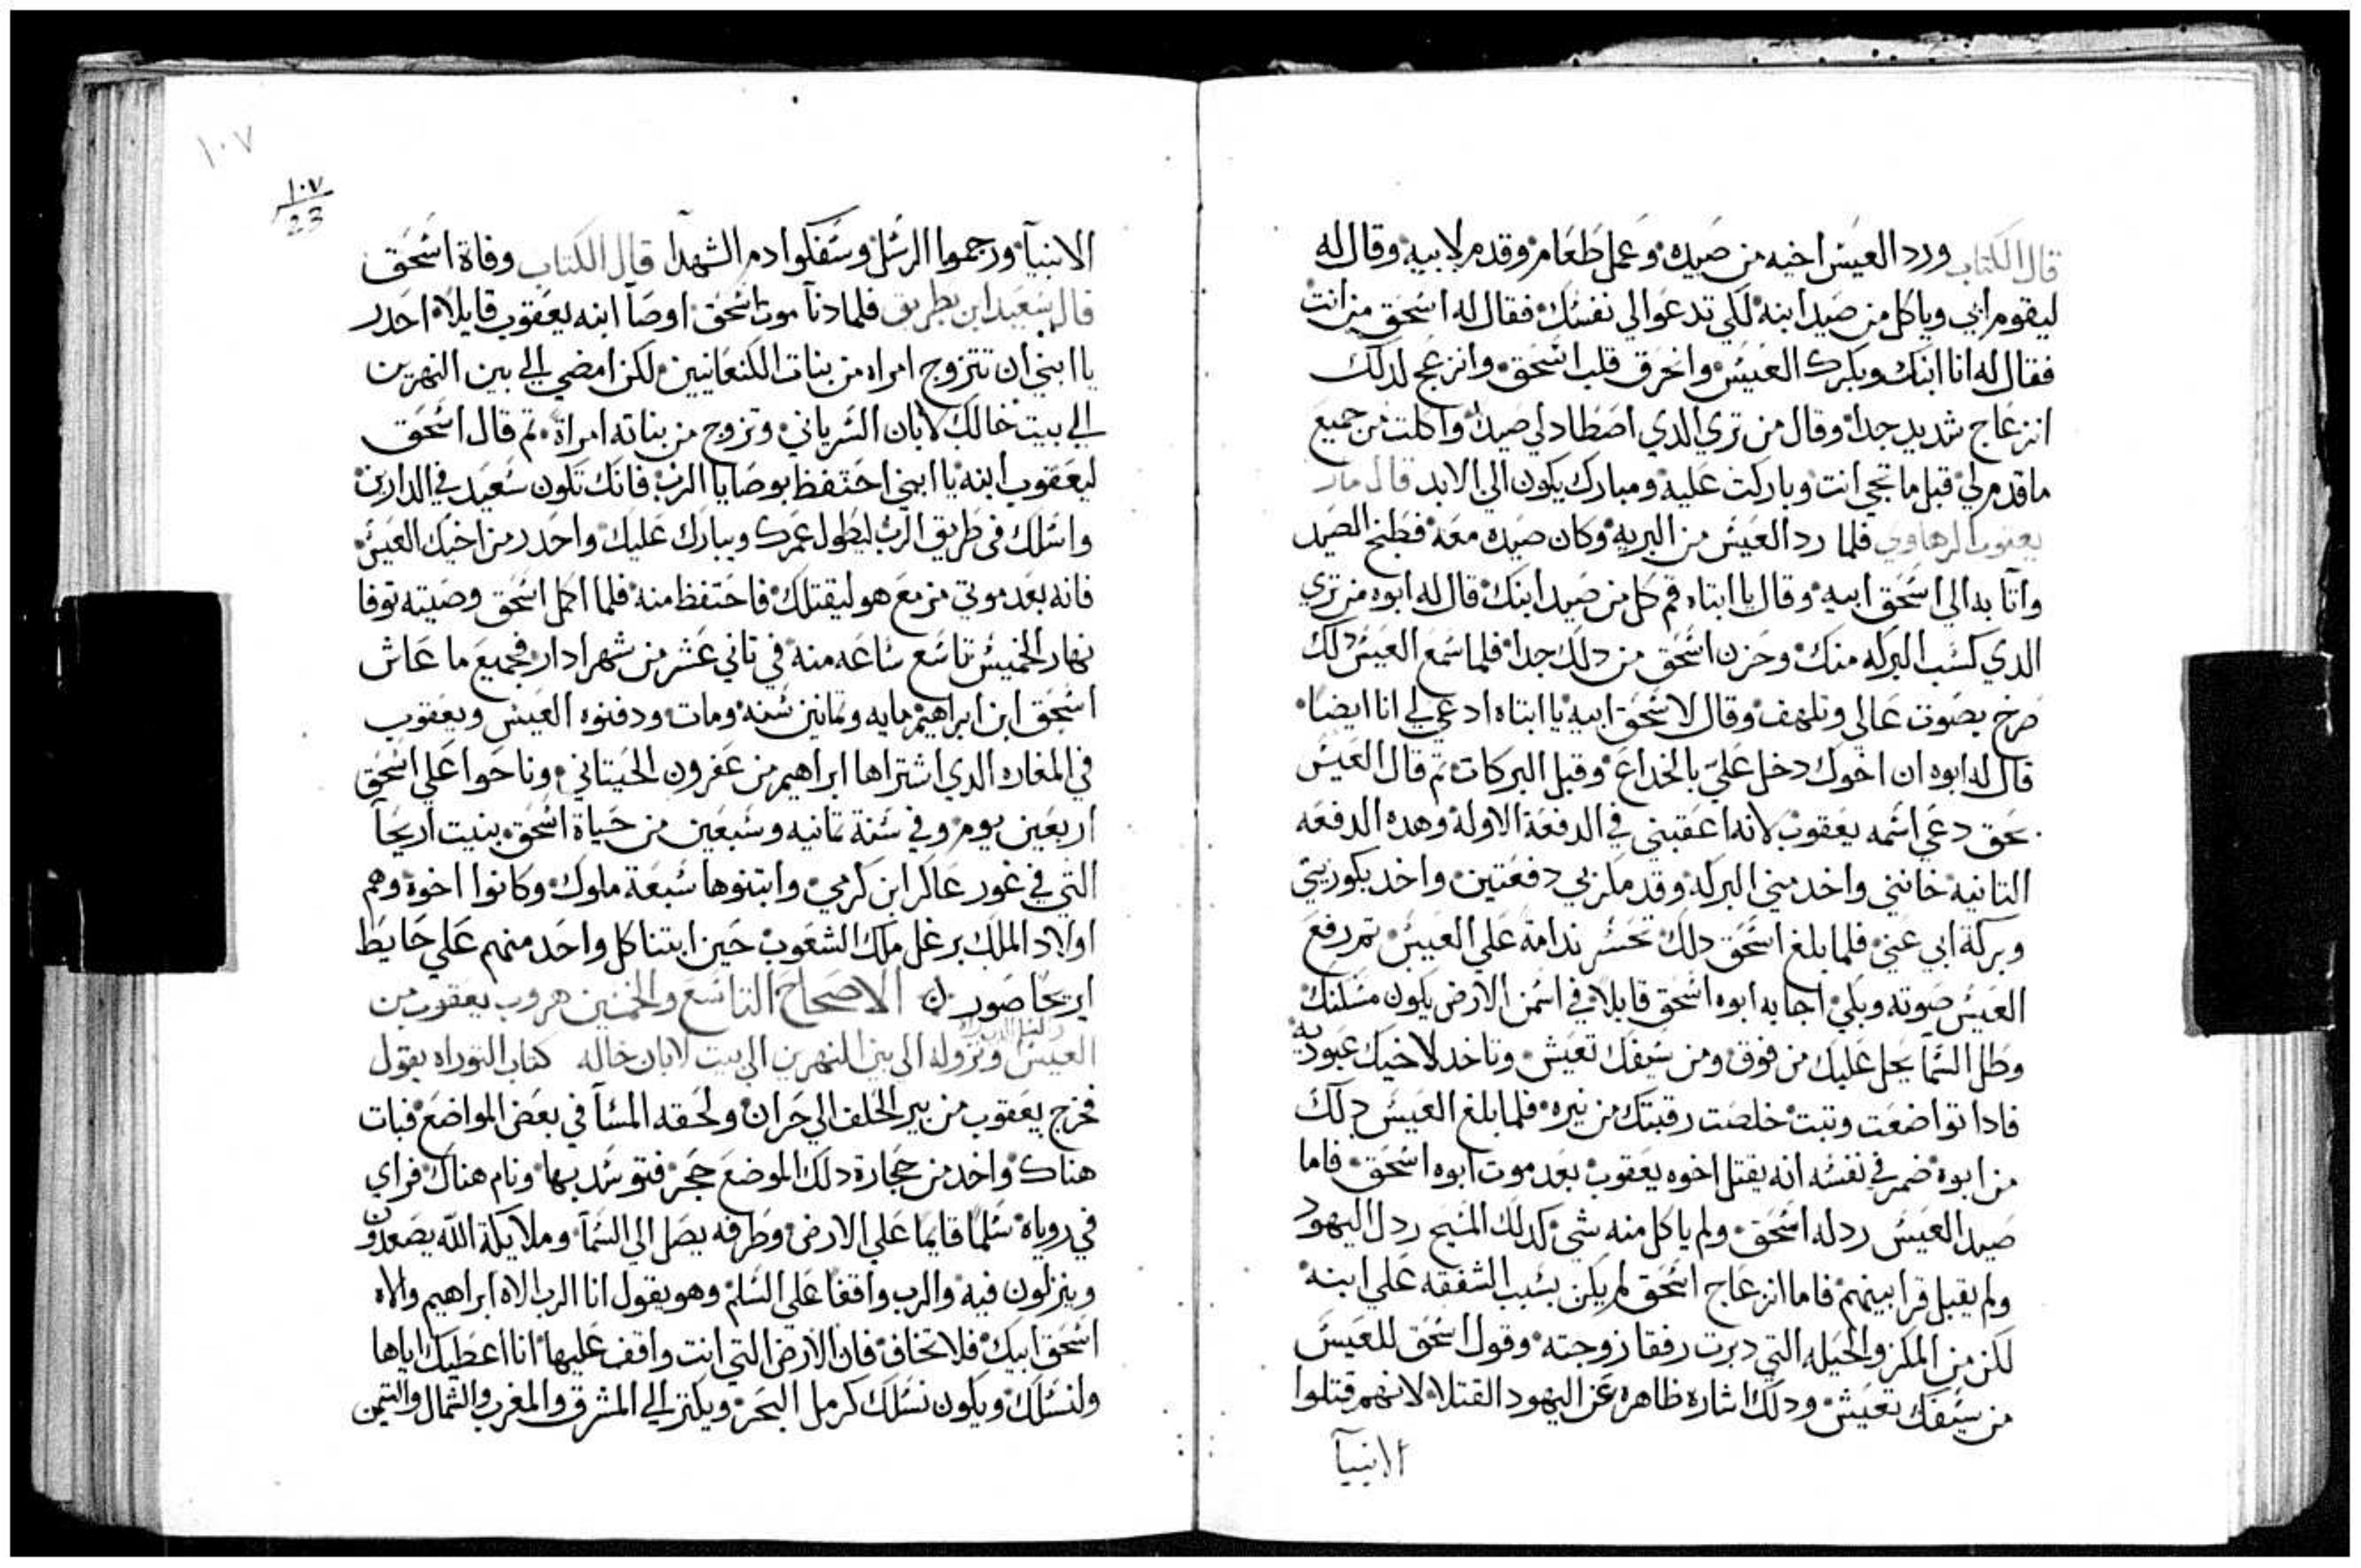 قال الكتاب ورد العيس اخيه من صيده وعمل طعام وقدم لابيه وقال له
ليقوم ابي وياكل من صيد ابنه لكي تدعوا لي نفسك فقال له اسحق من انت
فقال له انا ابنك وبكرك العيس وانحرق قلب اسحق وانزعج لدلك
انزعاج شديد جدا وقال من تري الدي اصطاد لي صيد واكلت من جميع
ماقدم لي قبل ما تجي انت وباركت عليه ومبارك يكون الي الابد قال مار
يعقوب الرهاوي فلما رد العيس من البريه وكان صيده معه فطبخ الصيد
واتا به الي اسحق ابيه وقال يا ابتاه قم كل من صيد ابنك قال له ابوه من تري
الدي كسب البركه منك وحزن اسحق من دلك جدا فلما سمع العيس دلك
صرخ بصوت عالي وتلهف وقال لاسحق ابيه يا ابتاه ادعي لي انا ايضا
قال له ابوه ان اخوك دخل علي بالخداع وقبل البركات تم قال العيس
بحق دعي اسمه يعقوب لانه اعقبني في الدفعة الاوله وهده الدفعه
التانيه خانني واخد مني البركه وقد مكر بي دفعتين واخد بكوريتي
وبركة ابي عني فلما بلغ اسحق دلك تحسر ندامة علي العيس تم رفع
العيس صوته وبكي اجابه ابوه اسحق قايلا في اسمن الارض يكون مسكنك
وطل السما يحل عليك من فوق ومن سيفك تعيش وتاخد لاخيك عبوديه
فادا تواضعت وتبت خلصت رقبتك من نيره فلما بلغ العيس دلك
من ابوه ضمر في نفسه انه يقتل اخوه يعقوب بعد موت ابوه اسحق فاما
صيد العيس ردله اسحق ولم ياكل منه شي كدلك المسيح ردل اليهود
ولم يقبل قرابينهم فاما انزعاج اسحق لم يكن بسبب الشفقه علي ابنه
لكن من المكر والحيله التي دبرت رفقا زوجته وقول اسحق للعيس
من سيفك تعيش ودلك اشاره ظاهره عن اليهود القتلا لانهم قتلوا
الانبيآ
١٠٧
١٠٧
23
الانبيآ ورجموا الرسل وسفكوا دم الشهدا قال الكتاب وفاة اسحق
قال سعيد ابن بطريق فلما دنا موت اسحق اوصا ابنه يعقوب قايلا احدر
يا ابني ان تتزوج امراه من بنات الكنعانيين لكن امضي الي بين النهرين
الي بيت خالك لابان السرياني وتزوج من بناته امراة تم قال اسحق
ليعقوب ابنه يا ابني احتفظ بوصايا الرب فانك تكون سعيد في الدارين
واسلك في طريق الرب ليطول عمرك ويبارك عليك واحدر من اخيك العيس
فانه بعد موتي مزمع هو ليقتلك فاحتفظ منه فلما اكمل اسحق وصيته توفا
نهار الخميس تاسع ساعه منه في تاني عشر من شهر ادار فجميع ما عاش
اسحق ابن ابراهيم مايه وتمانين سنه ومات ودفنوه العيس ويعقوب
في المغاره الدي اشتراها ابراهيم من عفرون الحيتاني وناحوا علي اسحق
اربعين يوم وفي سنة تمانيه وسبعين من حياة اسحق بنيت اريحآ
التي في غور عاكر ابن كرمي وابتنوها سبعة ملوك وكانوا اخوه وهم
اولاد الملك برغل ملك الشعوب حين ابتنا كل واحد منهم علي حايط
اريحا صور الاصحاح التاسع والخمسين هروب يعقوب من
العيس ونزوله الي بين النهرين الي بيت لابان خاله كتاب التوراه يقول
فخرج يعقوب من بير الحلف الي حران ولحقه المسآ في بعض المواضع فبات
هناك واخد من حجارة دلك الموضع حجر فتوسد بها ونام هناك فراي
في روياه سلما قايما علي الارض وطرفه يصل الي السمآ وملايكة الله يصعدون
وينزلون فيه والرب واقفا علي السلم وهو يقول انا الرب الاه ابراهيم والاه
اسحق ابيك فلا تخاف فان الارض التي انت واقف عليها انا اعطيك اياها
ولنسلك ويكون نسلك كرمل البحر ويكتر الي المشرق والمغرب والشمال والتيمن